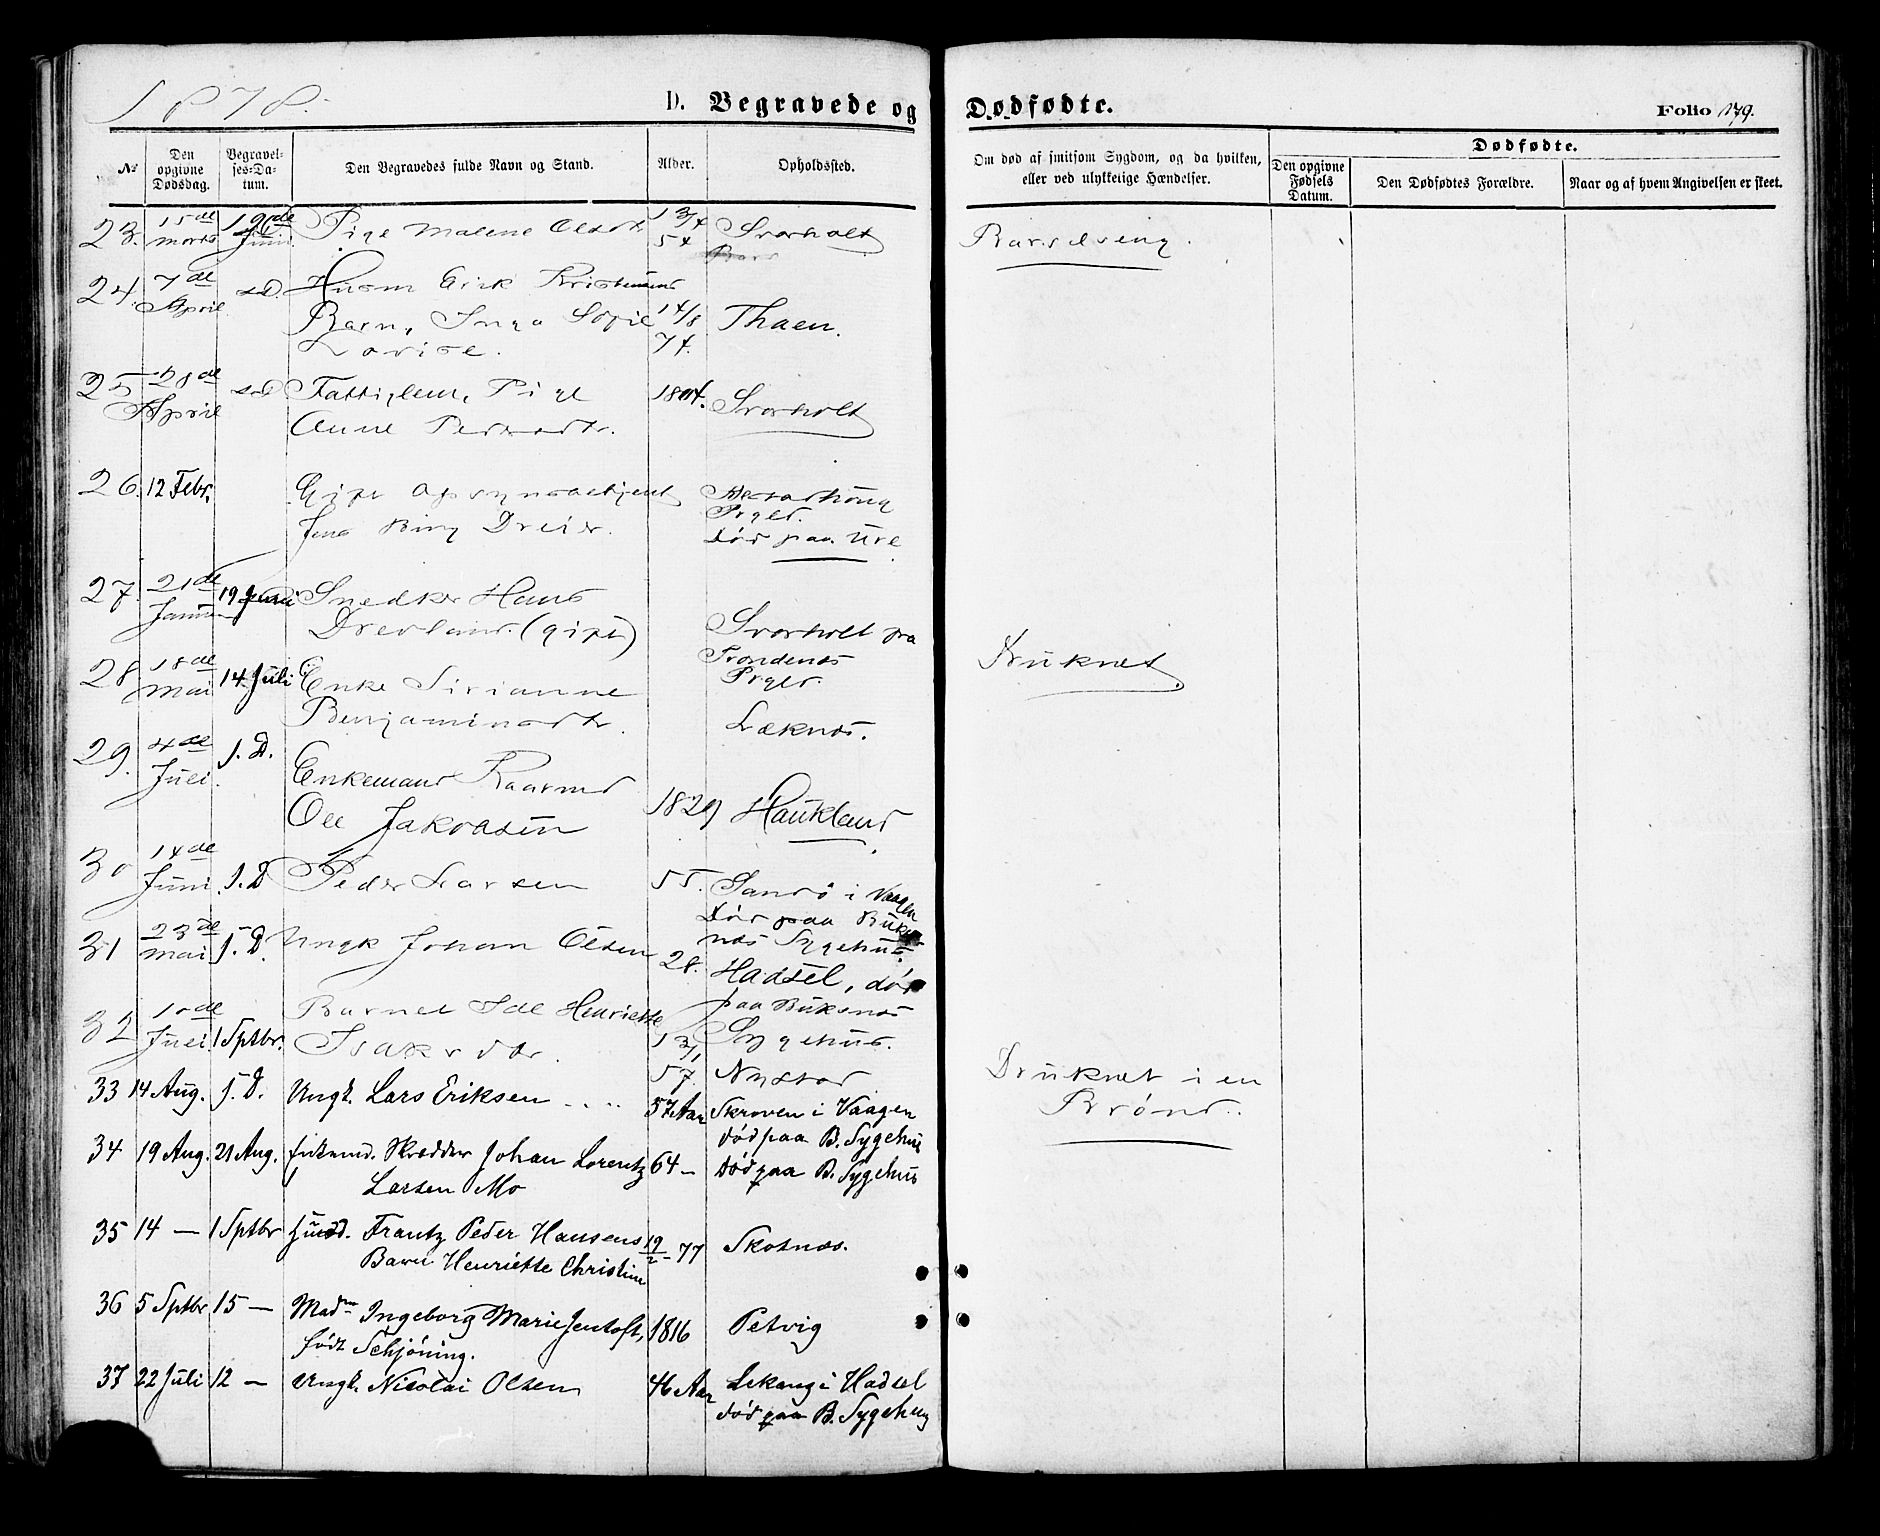 1878.
D. Begravede og
Dødfødte.
Folio 179.
No
Den opgivne Dødsdag.
Begravelses-Datum.
Den Begravedes fulde Navn og Stand.
Alder.
Opholdssted.
Om død af smitsom Sygdom, og da hvilken, eller ved ulykkelige Hændelser.
Dødfødte.
Den opgivne Fødsels Datum.
Den Dødfødtes Forældre.
Naar og af hvem Angivelsen er skeet.
23. 15de Marts 19de Juni Pige Malene Olsdtr 13/4 54 Svarholt Barselseng.
24. 7de April s.D. Husm Eirik Kristensens
Barn, Inga Sofie 14/8 74. Thaen.
Lovise.
25 28de April s.D Fattiglem, Pige 1804. Svarholt
Anne Pedersdtr.
26. 12 Febr. Gift Opsynsbetjent
Jens Bing Dreier. Prgld.
død paa Ure
27. 21de Januar 19 Juni Snedker Hans
Drevland. (gift) Svarholt fra
Trondenes
Prgld.
Druknet.
28 18de Mai 14 Juli Enke Sirianne
Benjaminsdtr. Læknes.
29. 4de Juli J. D. Enkemand Kaarmd
Ole Jakobsen 1829 Haukland
30 14de Juni J. D Peder Larsen 55. Sandø i Vaagen
død paa Buksnes Sygehus.
31 23de Mai J. D. Ungk Johan Olsen 28. Hadsel, død
paa Buksnes
Sygehus.
32 10de Juli 1 Sptbr. Barnet Ide Henriette
Isaksdtr. 13/1 57. Nystad Druknet i en
Brønd.
33 14 Aug. J. D. Ungk. Lars Eriksen 57 Aar Skroven i Vaagen
død paa B. Sygehus
34 19 Aug. 21 Aug. Enkemd. Skrædder Johan Lorentz 64 – død paa B. Sygehus
Larsen Mo
35 14 — 1 Sptbr Husd. Frantz Peder Hansens 19/2 - 77 Skotnes.
Barn Henriette Christine
36 5 Sptbr 15 — Madm Ingeborg Marie Jentoft, 1816 Petvig
født Schjöning.
37 22 Juli 12 — Ungk. Nicolai Olsen 46 Aar Lekang i Hadsel
død paa B. Sygehus